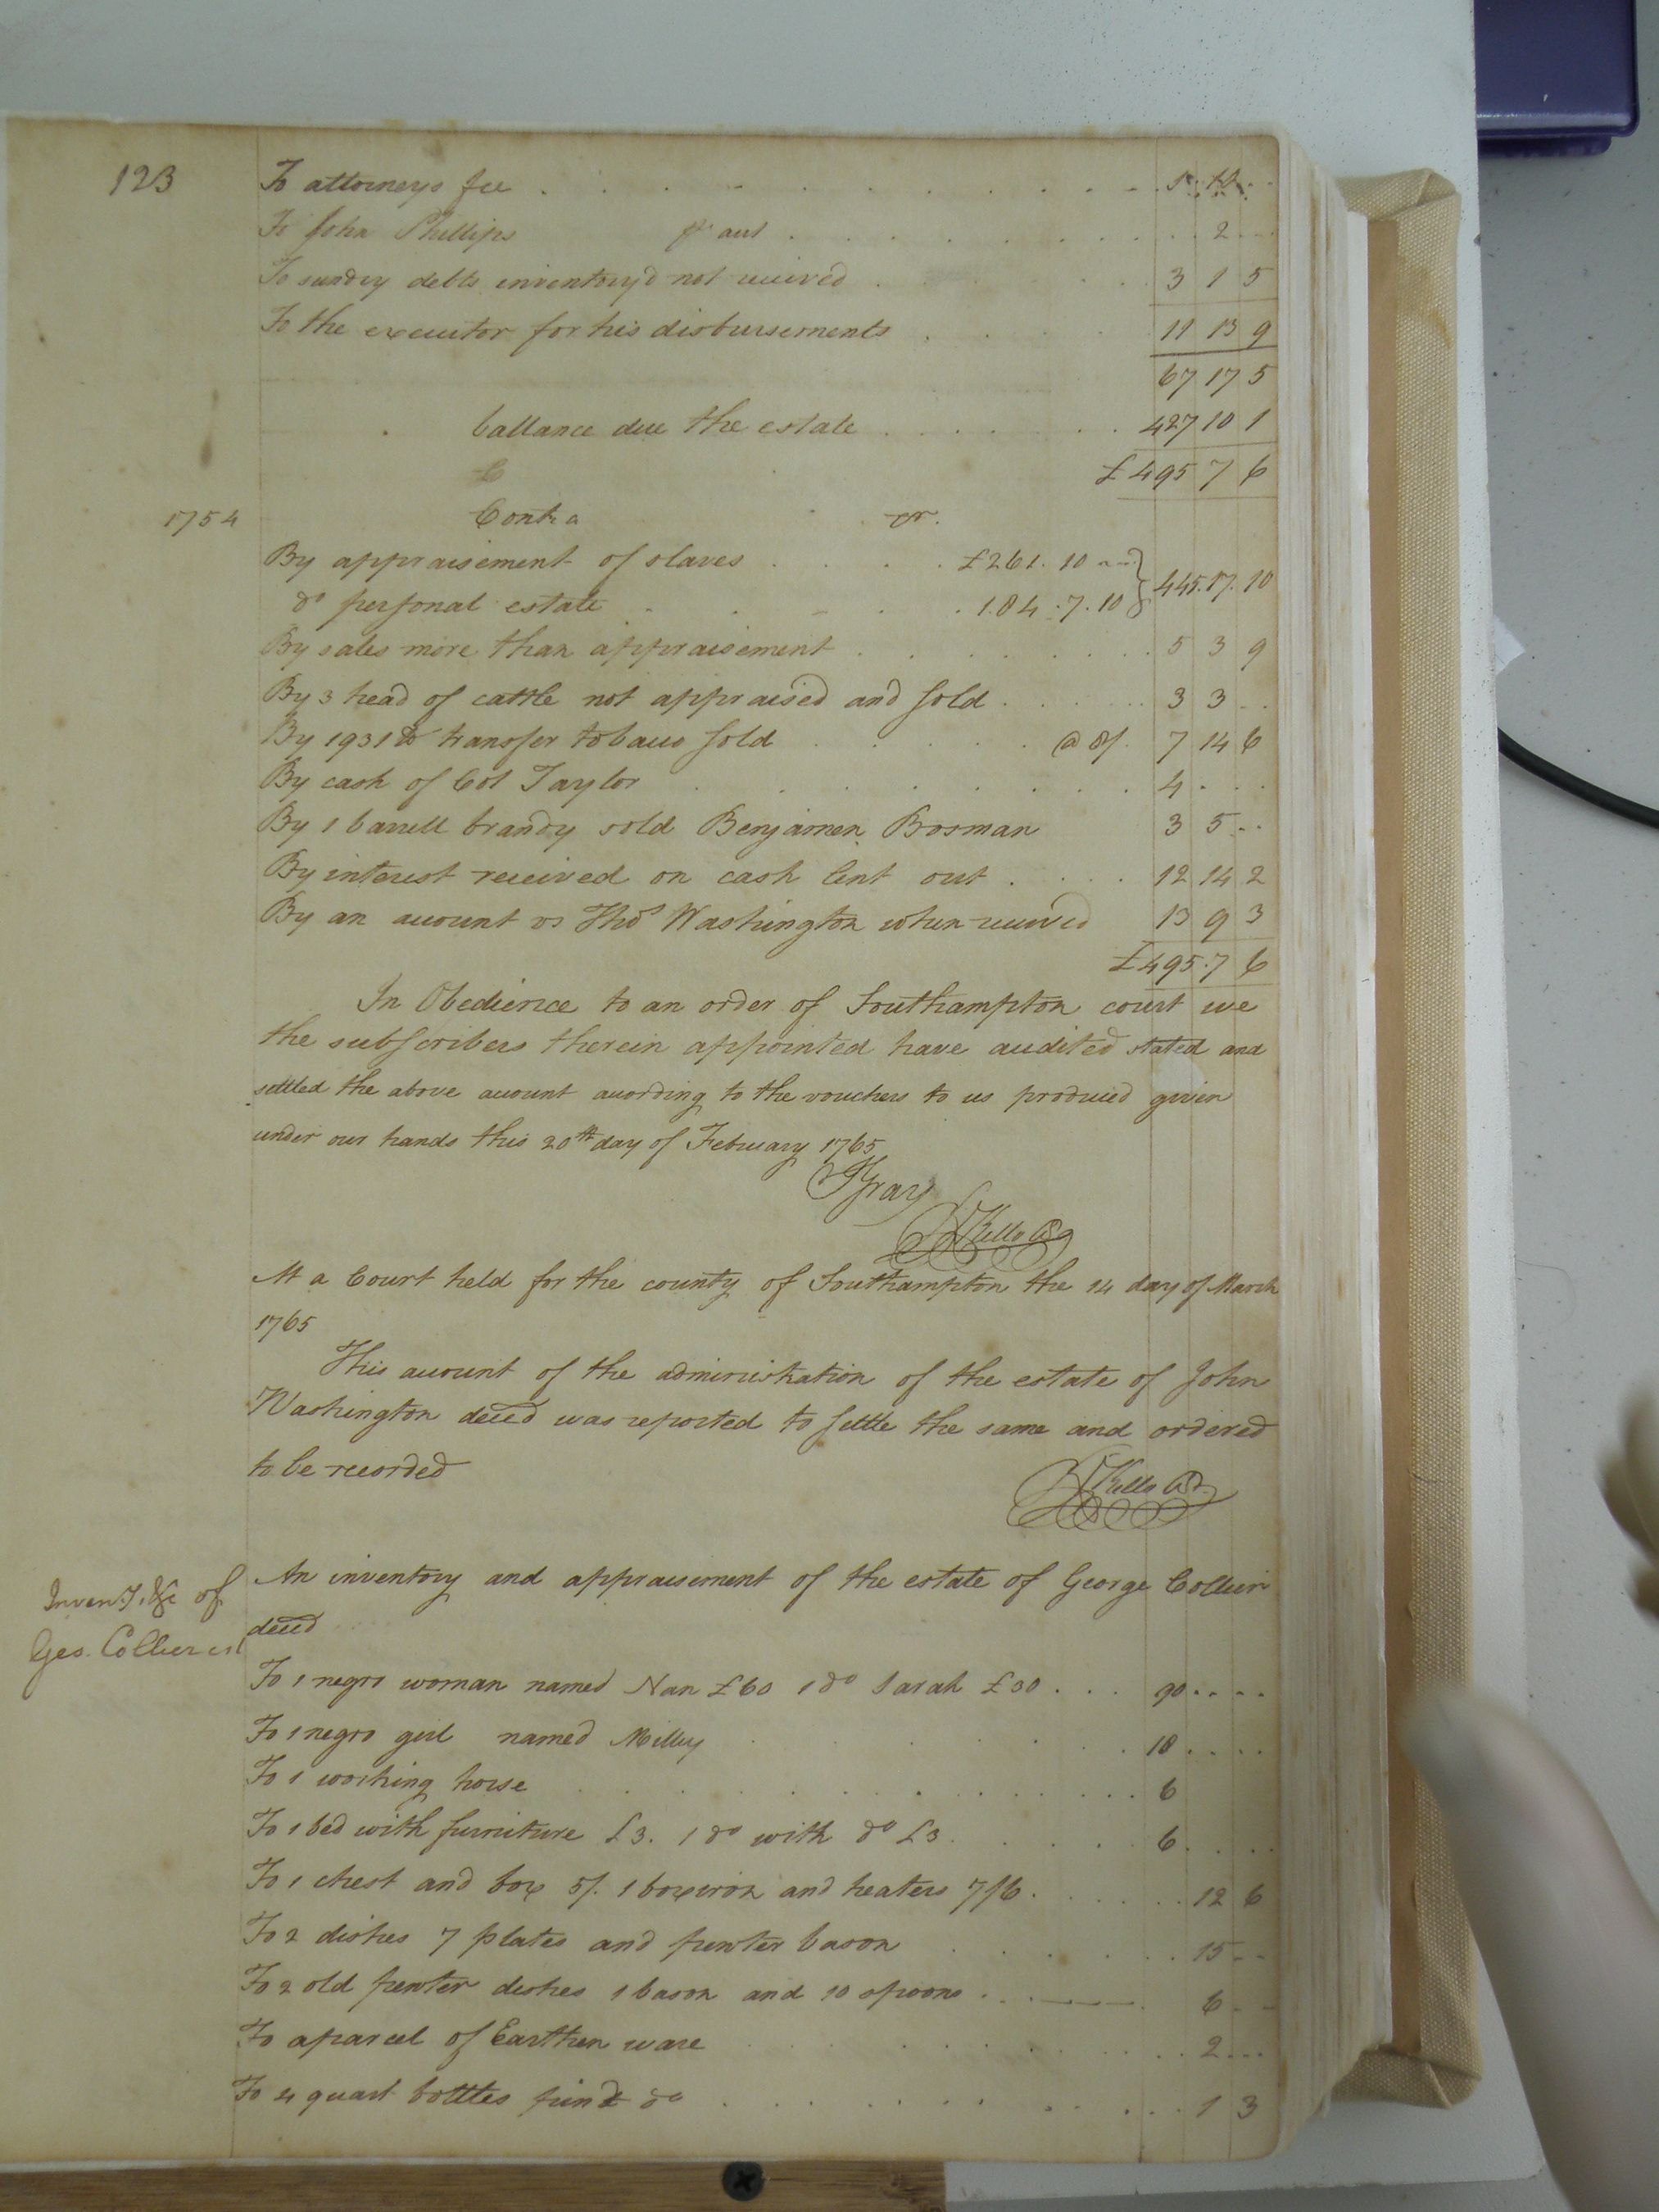 123
To attorneys fee
To John Phillips pr acct 2
To sundry debts inventory'd not received 3 1 5
To the executor for his disbursements 11 13 9
67 17 5
ballance due the estate 427 10 1
£495 7 6
1754 Contra cr.
By appraisement of slaves £261. 10
do personal estate 184. 7. 10 } 445. 17. 10
By sales more than appraisement 5 3 9
By 3 head of cattle not appraised and sold 3 3
By 1931 lb transfer tobacco sold @ 8/. 7 14 6
By cash of Col Taylor 4
By 1 barrell brandy sold Benjamen Bosman 3 5
By interest received on cash lent out 12 14 2
By an account vs Thos Washington when received 13 9 3
£495. 7 6
In Obedience to an order of Southampton court we
the subscribers therein appointed have audited stated and
settled the above account according to the vouchers to us produced given
under our hands this 20th day of February 1765
JGray
RKello
At a Court held for the county of Southampton the 14 day of March
1765
This account of the administration of the estate of John
Washington decd was reported to settle the same and ordered
to be recorded
RKello
Inven.T. &c of
Geo. Collier
An inventory and appraisement of the estate of George Collier
decd
To 1 negro woman named Nan £60 1 do Sarah £30 90
To 1 negro girl named Milly 18
To 1 working horse 6
To 1 bed with furniture £3. 1 do with do £3 6
To 1 chest and box 5/. 1 box iron and heaters 7/6 12 6
To 2 dishes 7 plates and pewter bason 15
To 2 old pewter dishes 1 bason and 10 spoons 6
To a parcel of Earthen ware 2
To 4 quart bottles pint do 1 3